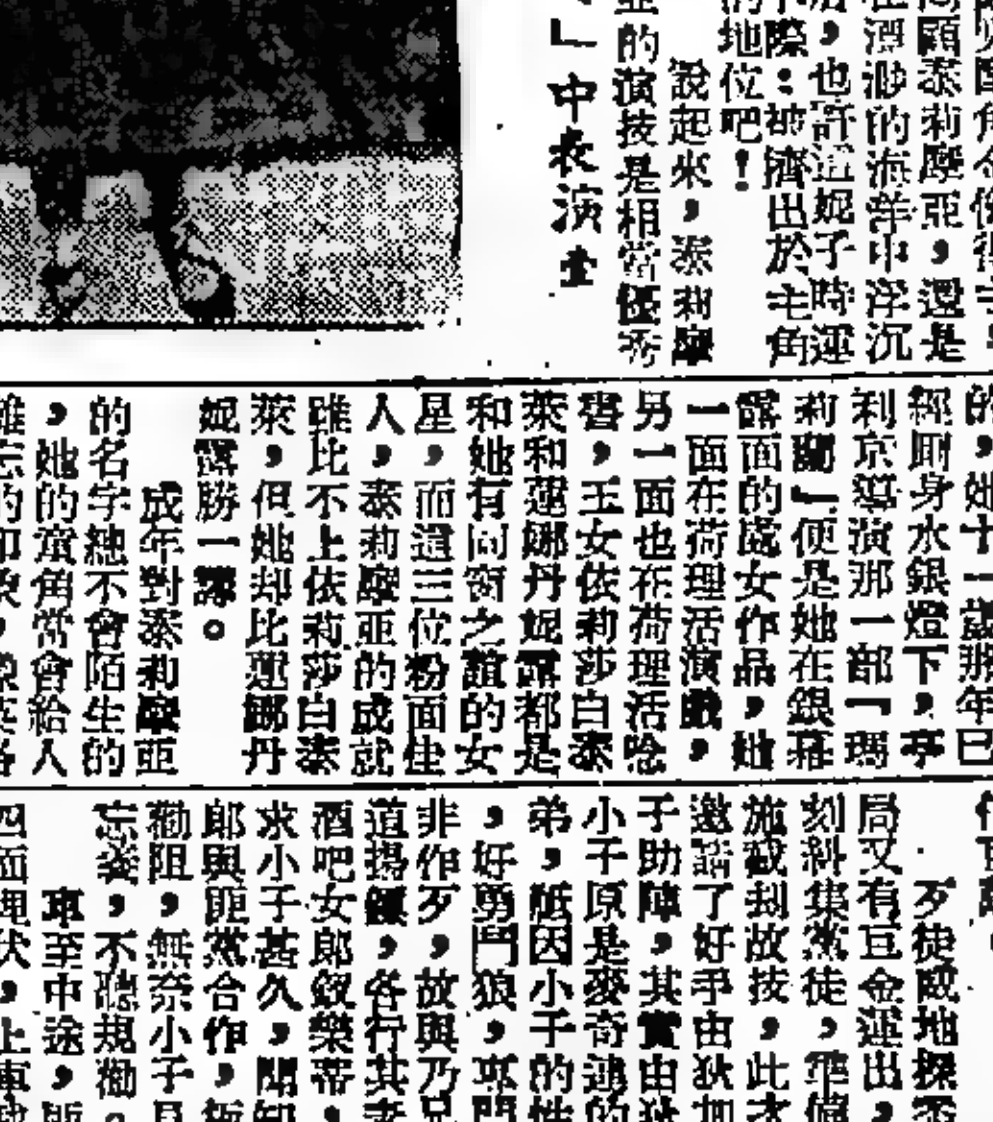 回顧泰莉摩亞，還是
在漂渺的海洋中浮沉
，也許這妮子時運
不際：被擠出於主角
的地位吧！
說起來，泰莉摩
亞的演技是相當優秀
」中表演壹
的，她十一歲那年已
經厠身水銀燈下，亭
利京導演那一部「瑪
莉蘭」便是她在銀幕
露面的處女作品，她
一面在荷理活演戲，
另一面也在荷理活唸
書，玉女依莉莎白泰
萊和蓮娜丹妮露都是
和她有同窗之誼的女
星，而這三位粉面佳
人，泰莉摩亞的成就
雖比不上依莉莎白泰
萊，但她却比蓮娜丹
妮露勝一籌。
成年對泰莉摩亞
的名字總不會陌生的
，她的演角常會給人
難忘的印象，
歹徒戚地探悉
局又有巨金運出，
刻糾集黨徒，準備
施截刦故技，此才
邀請了好手由狄加
子助陣，其實由狄
小子原是麥奇迪的
弟，祇因小子的性
，好勇鬥狠，專門
非作歹，故與乃兄
道揚鑣，各行其
酒吧女郎敘樂蒂，
求小子甚久，聞知
郎與匪黨合作，極
勸阻，無奈小子
忘義，不聽規勸。
車至中途，
四面埋伏，上車